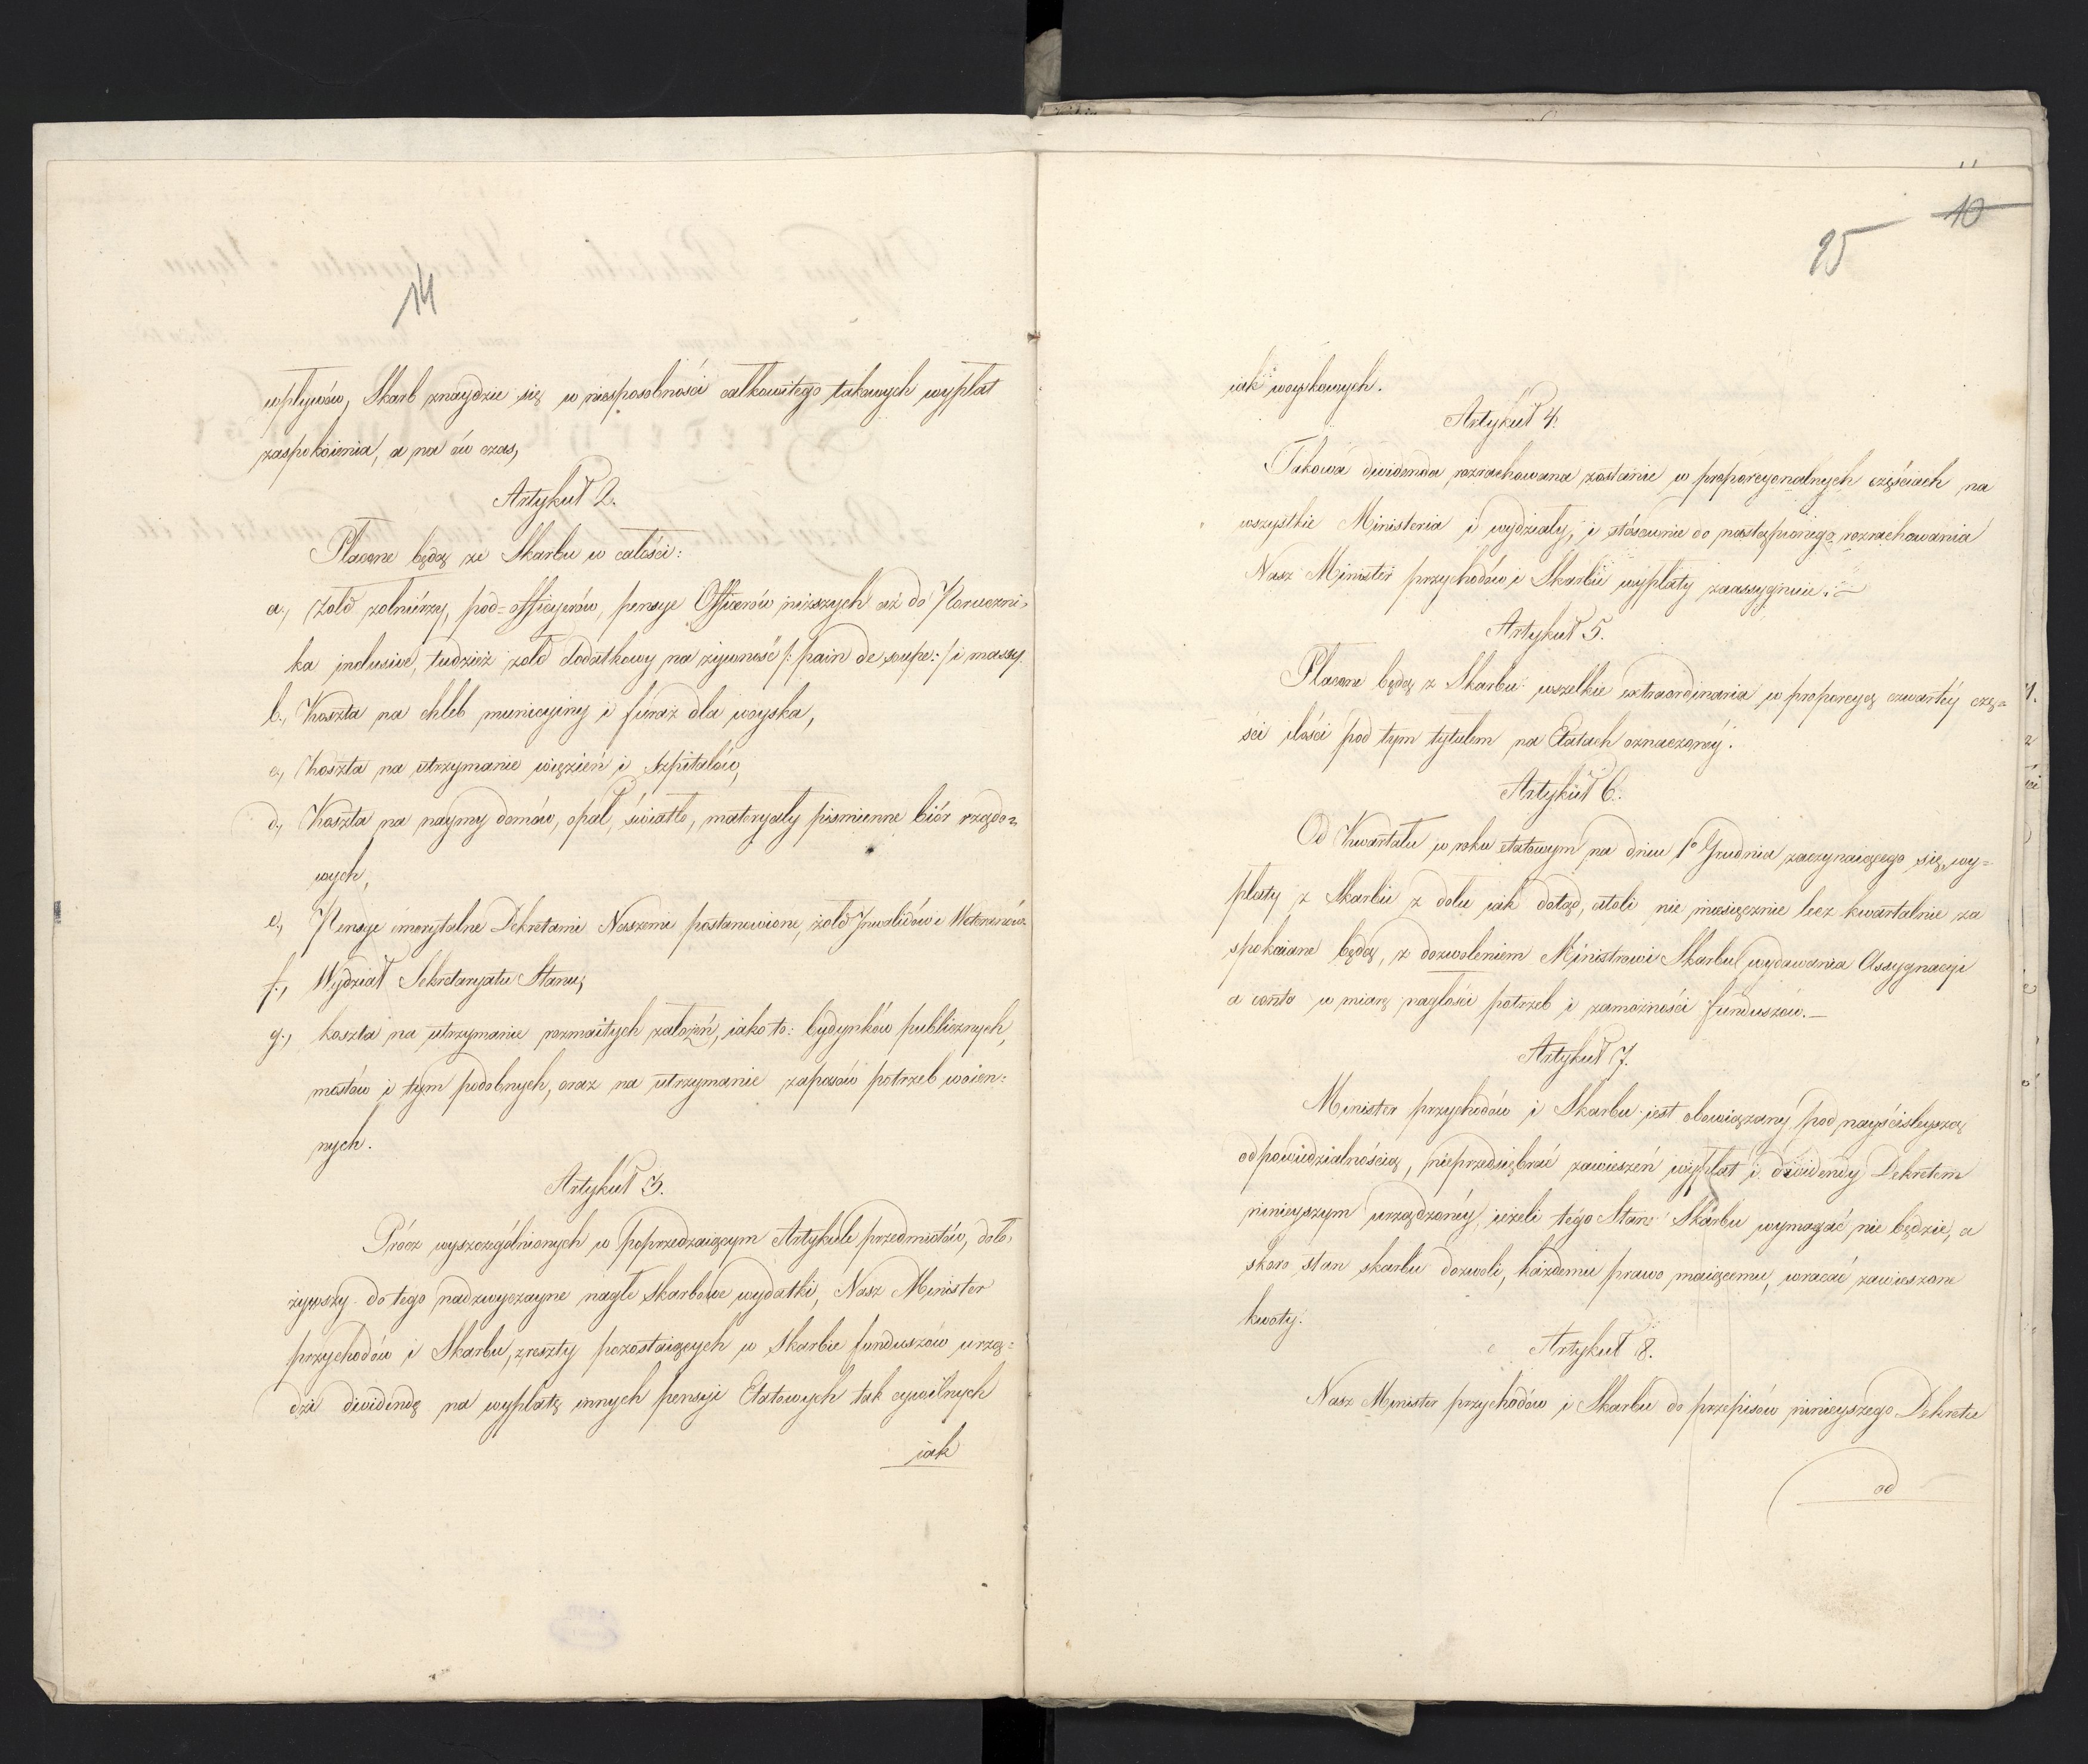 14
wpływów, Skarb znaydzie się w niesposobności całkowitego takowych wypłat
zaspokoienia, a na ów czas,
Artykuł 2.
Płacone będą ze Skarbu w całości:
a., Żołd żołnierzy, pod=officyerów, pensye Officerów niższych aż do Poruczni=
ka inclusive, tudzież żołd dodatkowy na żywność /: pain de soupe :/ i massy
b., Koszta na chleb municyiny i furaż dla woyska,
c., Koszta na utrzymanie więzień i Szpitalów,
d., Koszta na naymy domów, opał, światło, materyały piśmienne biór rządo=
wych,
e., Pensye emerytalne Dekretami Naszemi postanowione, żołd Inwalidów i Weteranów
f., Wydział Sekretaryatu Stanu,
g., koszta na utrzymanie rozmaitych założeń, iako to: budynków publicznych,
mostów i tym podobnych, oraz na utrzymanie zapasów potrzeb woien=
nych.
Artykuł 3.
Prócz wyszczególnionych w poprzedzaiącym Artykule przedmiotów, doło=
żywszy do tego nadzwyczayne nagłe skarbowe wydatki, Nasz Minister
przychodów i Skarbu, z reszty pozostaiących w Skarbie funduszów urzą=
dzi dividendę na wypłatę innych pensyi Etatowych tak cywilnych
iak
10
25
iak woyskowych.
Artykuł 4.
Takowa dividenda rozrachowana zostanie w proporcyonalnych częściach na
wszystkie Ministeria i wydziały, i stósownie do nastąpionego rozrachowania
Nasz Minister przychodów i Skarbu wypłaty zaassygnuie.
Artykuł 5.
Płacone będą z Skarbu wszelkie extraordinaria w proporcyą czwartéy czę=
ści ilości pod tym tytułem na Etatach oznaczonéy.
Artykuł 6.
Od Kwartału w roku etatowym na dniu 1o Grudnia zaczynaiącego się, wy=
płaty z Skarbu z dołu iak dotąd, atoli nie miesięcznie lecz kwartalnie za
spokaiane będą, z dozwoleniem Ministrowi Skarbu wydawania Assygnacyi
a conto w miarę nagłości potrzeb i zamożności funduszów.
Artykuł 7.
Minister przychodów i Skarbu iest obowiązany, pod nayściśleyszą
odpowiedzialnością, nieprzedsiębrać zawieszeń wypłat i dividendy Dekretem
ninieyszym urządzonéy, ieżeli tego Stan Skarbu wymagać nie będzie, a
skoro stan skarbu dozwoli, każdemu prawo maiącemu, wracać zawieszone
kwoty.
Artykuł 8.
Nasz Minister przychodów i Skarbu do przepisów ninieyszego Dekretu
od